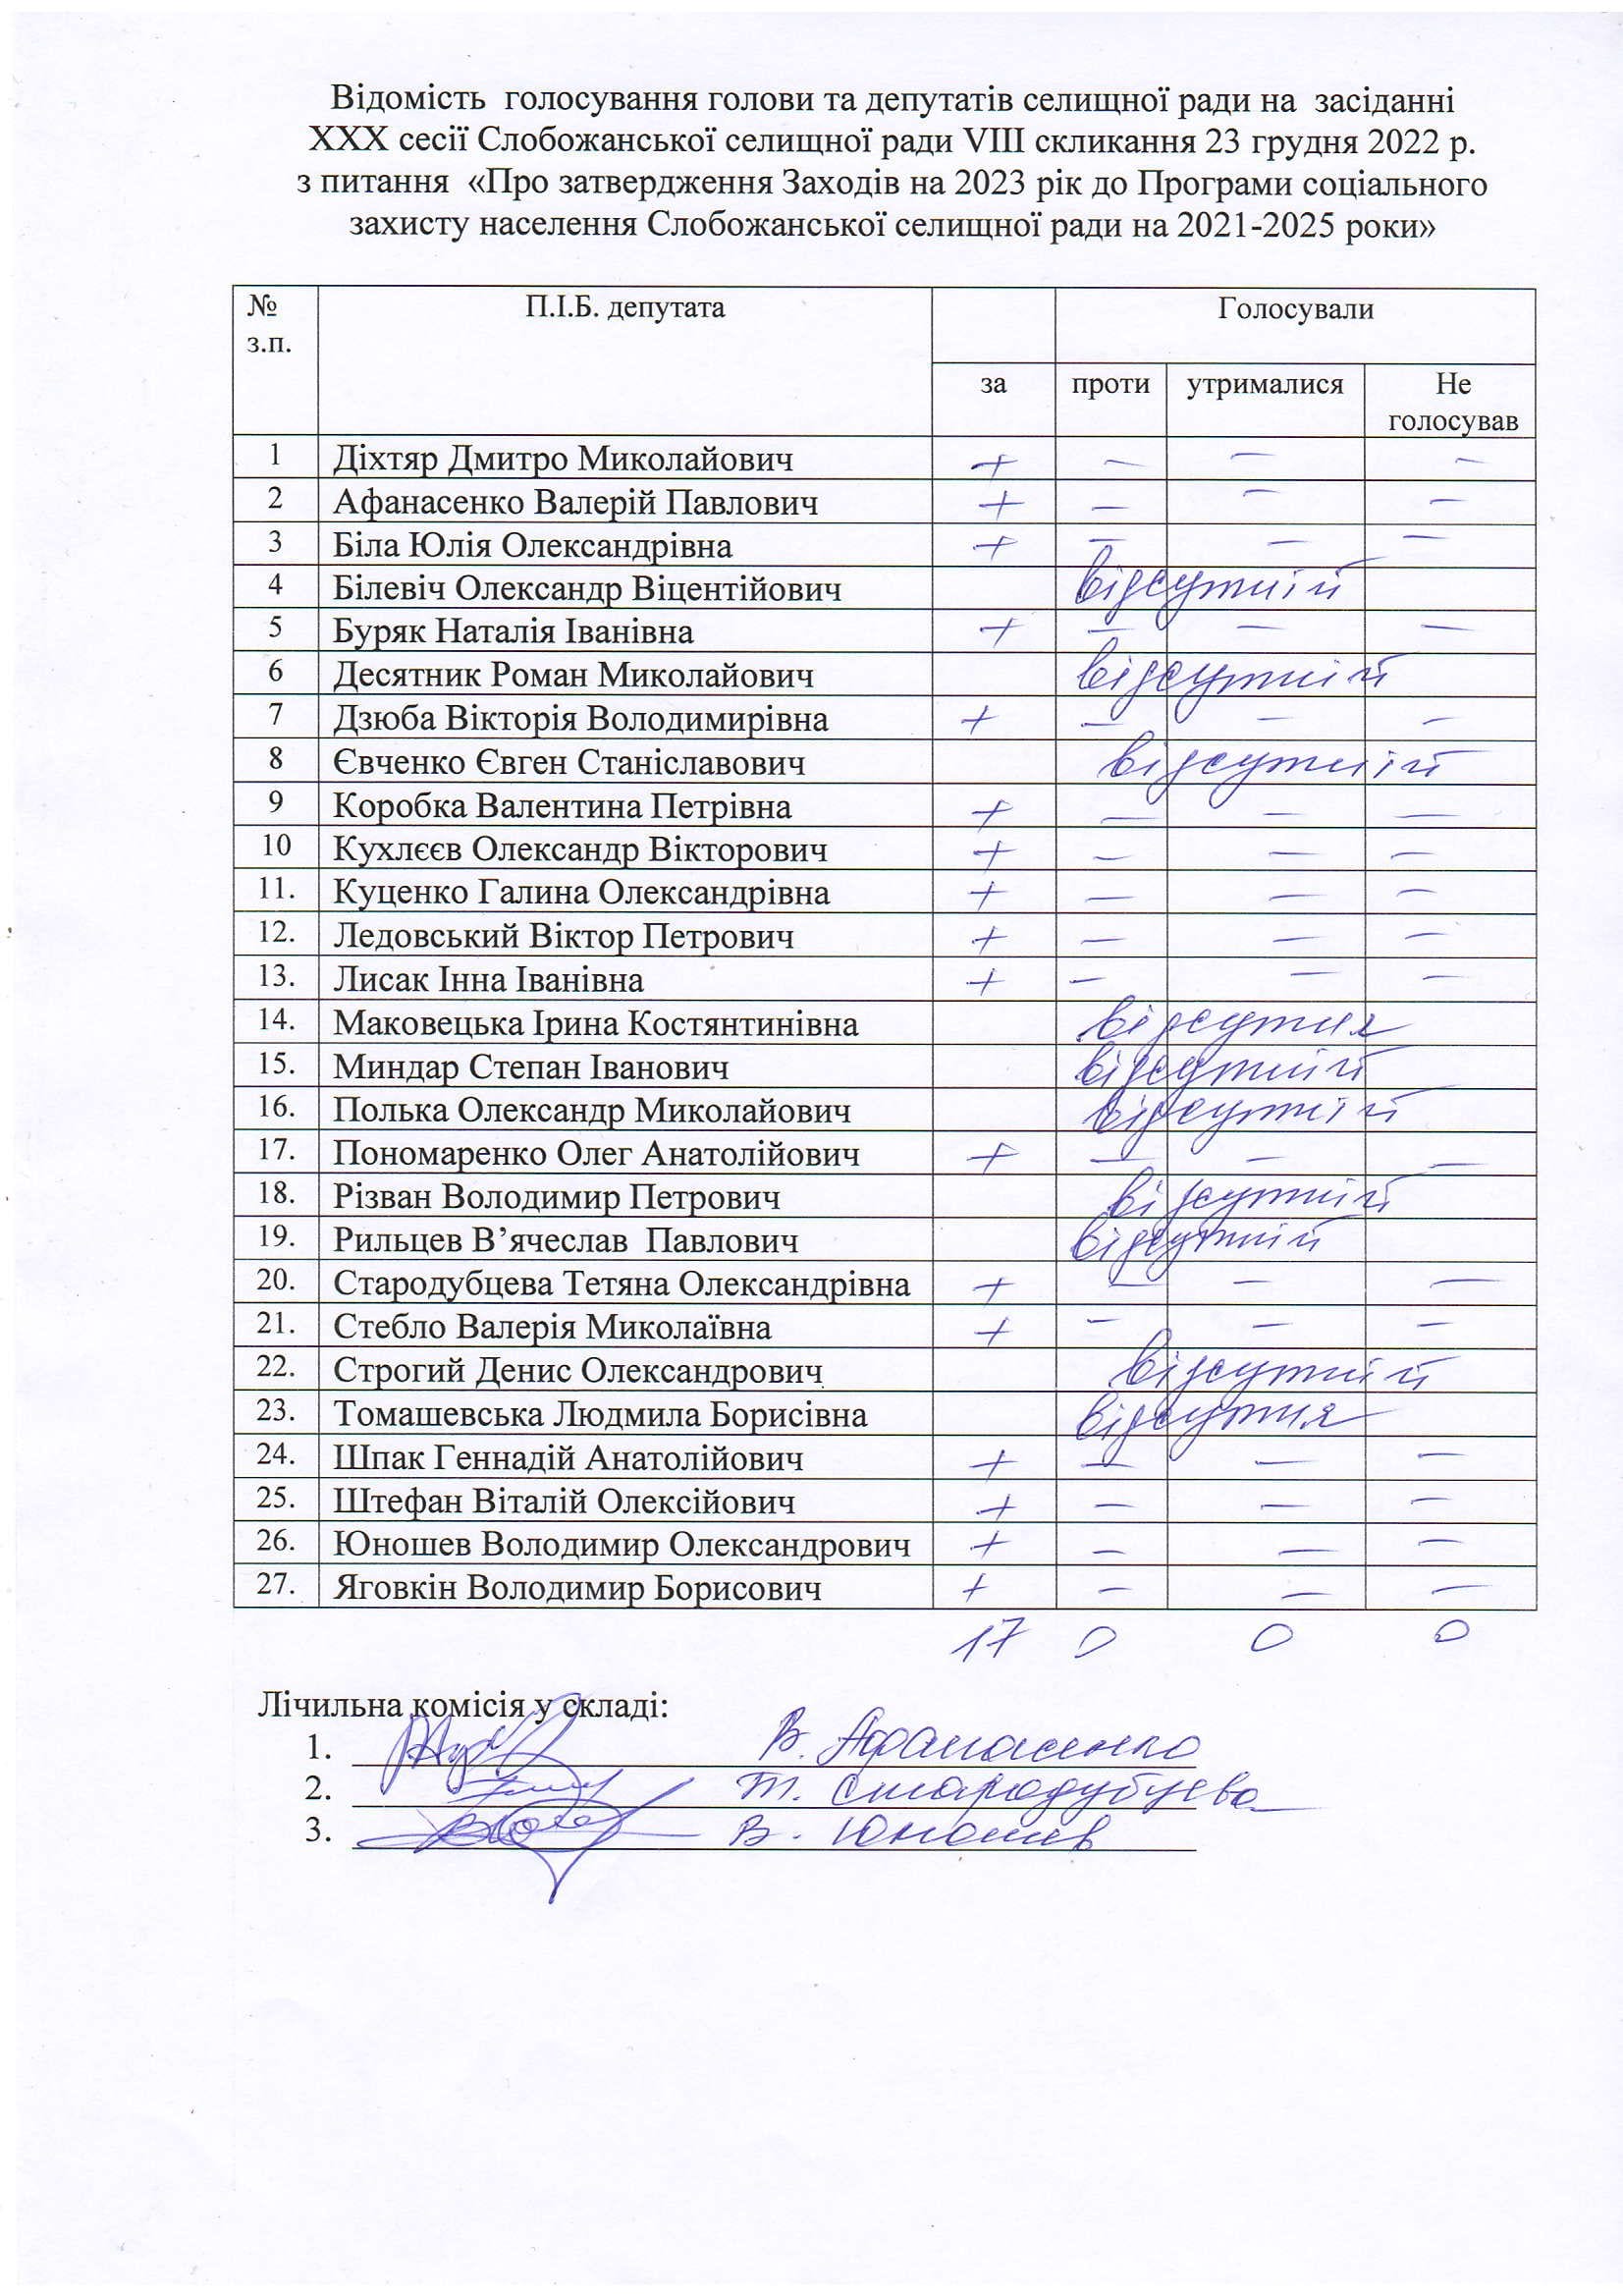 Відомість голосування голови та депутатів селищної ради на засіданні
XXX сесії Слобожанської селищної ради VIII скликання 23 грудня 2022 р.
з питання «Про затвердження Заходів на 2023 рік до Програми соціального
захисту населення Слобожанської селищної ради на 2021-2025 роки»
№ з.п. П.І.Б. депутата Голосували
за проти утрималися Не голосував
1 Діхтяр Дмитро Миколайович + — — —
2 Афанасенко Валерій Павлович + — — —
3 Біла Юлія Олександрівна + — — —
4 Білевіч Олександр Віцентійович відсутній
5 Буряк Наталія Іванівна + — — —
6 Десятник Роман Миколайович відсутній
7 Дзюба Вікторія Володимирівна + — — —
8 Євченко Євген Станіславович відсутній
9 Коробка Валентина Петрівна + — — —
10 Кухлєєв Олександр Вікторович + — — —
11. Куценко Галина Олександрівна + — — —
12. Ледовський Віктор Петрович + — — —
13. Лисак Інна Іванівна + — — —
14. Маковецька Ірина Костянтинівна відсутня
15. Миндар Степан Іванович відсутній
16. Полька Олександр Миколайович відсутній
17. Пономаренко Олег Анатолійович + — — —
18. Різван Володимир Петрович відсутній
19. Рильцев В’ячеслав Павлович відсутній
20. Стародубцева Тетяна Олександрівна + — — —
21. Стебло Валерія Миколаївна + — — —
22. Строгий Денис Олександрович відсутній
23. Томашевська Людмила Борисівна відсутня
24. Шпак Геннадій Анатолійович + — — —
25. Штефан Віталій Олексійович + — — —
26. Юношев Володимир Олександрович + — — —
27. Яговкін Володимир Борисович + — — —
17 0 0 0
Лічильна комісія у складі:
1. В. Афанасенко
2. Т. Стародубцева
3. В. Юношев